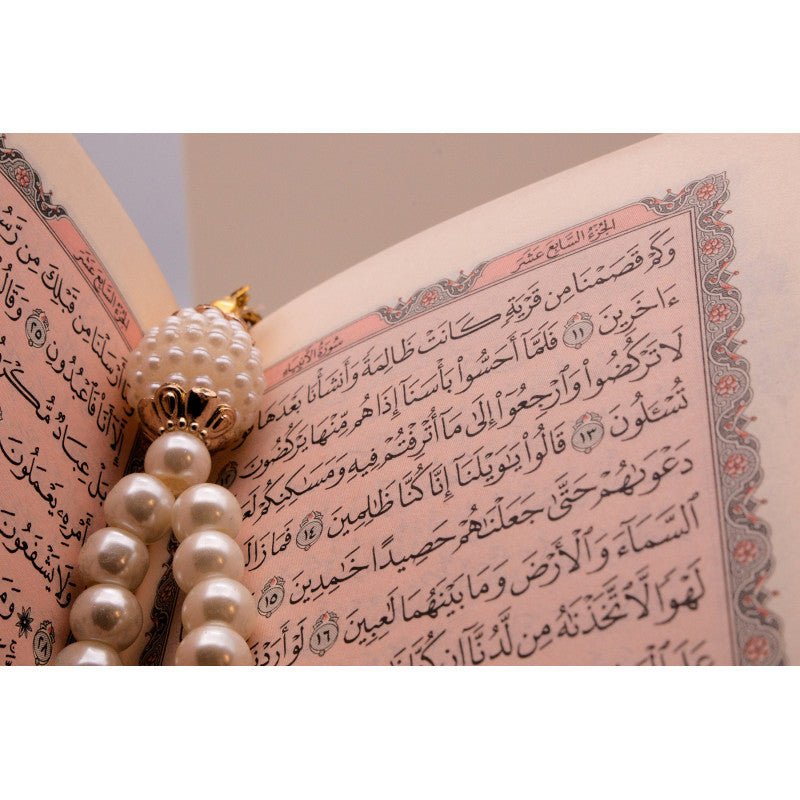 الجُزْءُ السَّابِعَ عَشَرَ
سُورَةُ الأَنبِيَاءِ
وَكَمْ قَصَمْنَا مِن قَرْيَةٍ كَانَتْ ظَالِمَةً وَأَنشَأْنَا بَعْدَهَا
ءَاخَرِينَ ١١ فَلَمَّآ أَحَسُّوا۟ بَأْسَنَآ إِذَا هُم مِّنْهَا يَرْكُضُونَ ١٢
لَا تَرْكُضُوا۟ وَٱرْجِعُوٓا۟ إِلَىٰ مَآ أُتْرِفْتُمْ فِيهِ وَمَسَٰكِنِكُمْ
تُسْـَٔلُونَ ١٣ قَالُوا۟ يَٰوَيْلَنَآ إِنَّا كُنَّا ظَٰلِمِينَ ١٤ فَمَا زَال
دَعْوَىٰهُمْ حَتَّىٰ جَعَلْنَٰهُمْ حَصِيدًا خَٰمِدِينَ ١٥
ٱلسَّمَآءَ وَٱلْأَرْضَ وَمَا بَيْنَهُمَا لَٰعِبِينَ ١٦ لَوْ أَرَدْنَ
لَهْوًا لَّٱتَّخَذْنَٰهُ مِن لَّدُنَّآ إِن كُنَّا
الجُزْءُ السَّابِعَ عَشَرَ
أَرْسَلْنَا مِن قَبْلِكَ مِن
إِلَّآ أَنَا۠ فَٱعْبُدُونِ ٢٥
بَلْ عِبَادٌ
بِأَمْرِهِۦ يَعْمَلُونَ
وَلَا يَشْفَعُونَ